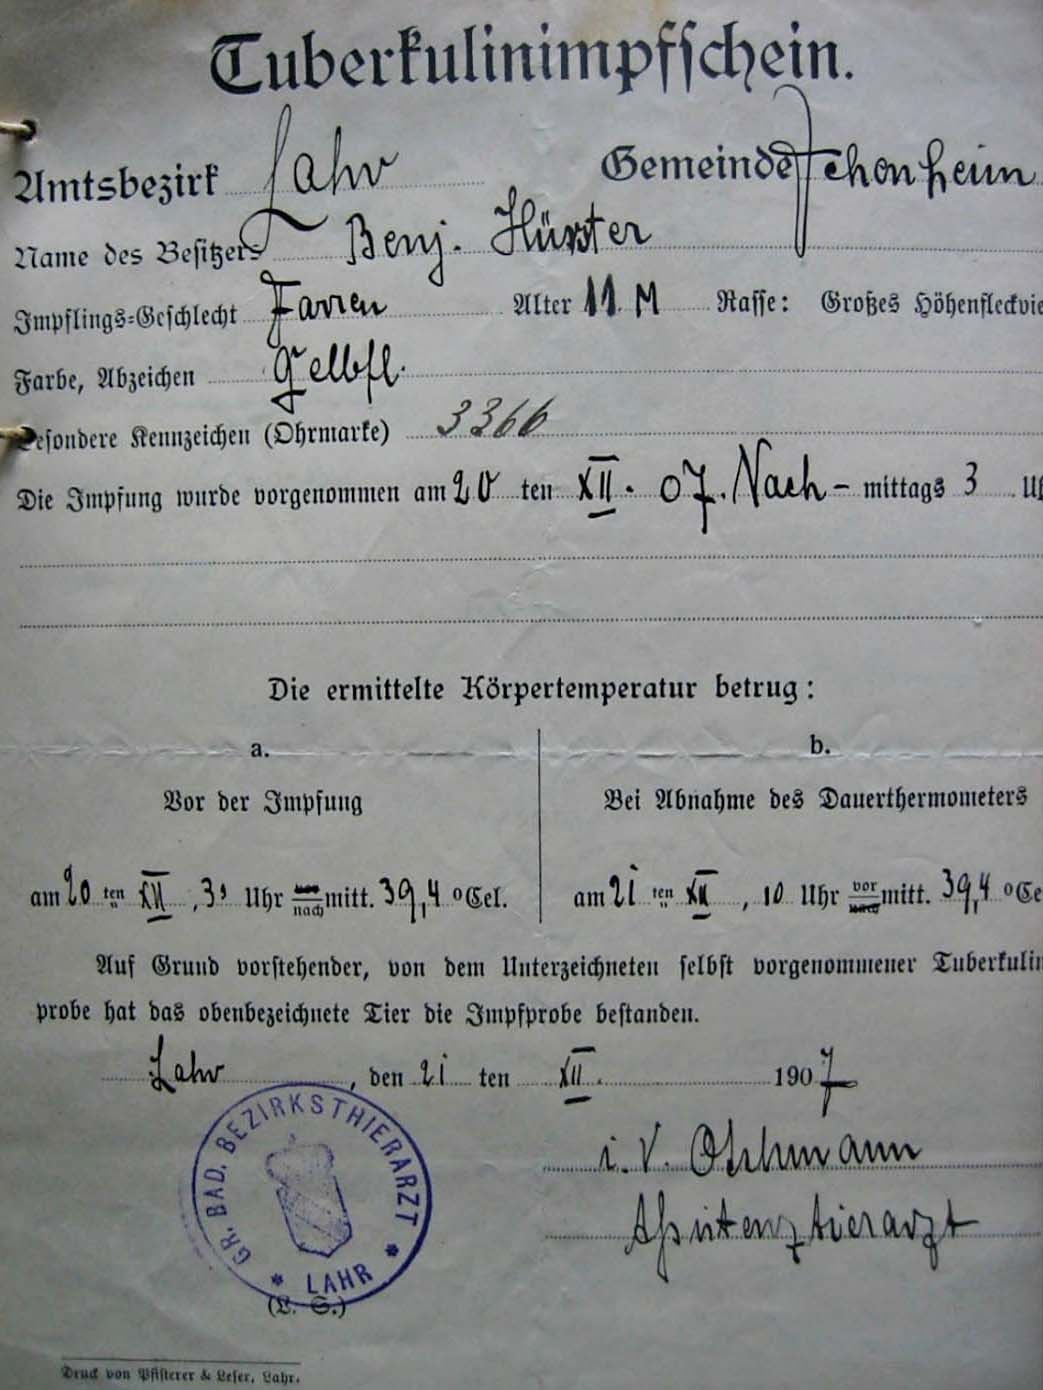 Tuberkulinimpfschein.
Amtsbezirk Lahr Gemeinde Ichenheim
Name des Besitzers Benj. Hürster
Impflings-Geschlecht Farren Alter 11 M Rasse: Großes Höhenfleckvie
Farbe, Abzeichen Gelbfl.
Besondere Kennzeichen (Ohrmarke) 3366
Die Impfung wurde vorgenommen am 20 ten XII. 07. Nach- mittags 3 Uh
Die ermittelte Körpertemperatur betrug:
a. b.
Vor der Impfung Bei Abnahme des Dauerthermometers
am 20 ten XII , 3 Uhr nach mitt. 39,4 ° Cel. am 21 ten XII , 10 Uhr vor mitt. 39,4 ° Ce
Auf Grund vorstehender, von dem Unterzeichneten selbst vorgenommener Tuberkulin
probe hat das obenbezeichnete Tier die Impfprobe bestanden.
Lahr , den 21 ten XII. 1907
i. V. Oehmann
Assistenztierarzt
GR. BAD. BEZIRKSTHIERARZT * LAHR *
(L. S.)
Druck von Pfisterer & Leser, Lahr.